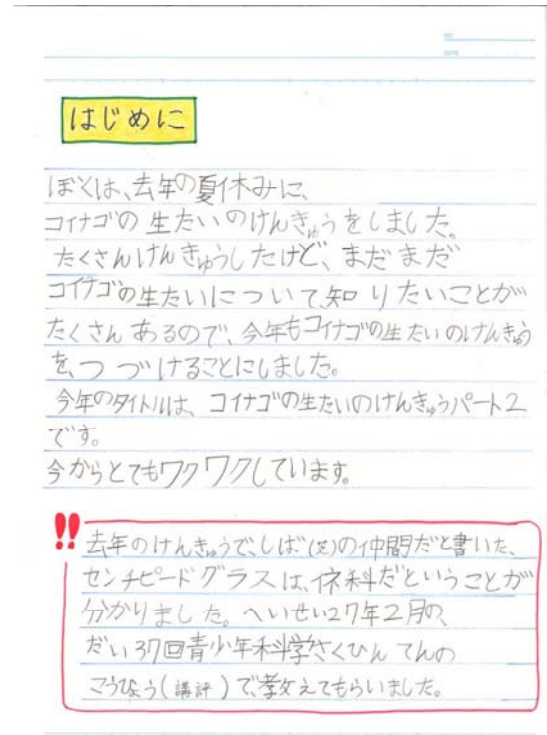 NO.
DATE
はじめに
ぼくは、去年の夏休みに、
コイナゴの生たいのけんきゅうをしました。
たくさんけんきゅうしたけど、まだまだ
コイナゴの生たいについて、知りたいことが
たくさんあるので、今年もコイナゴの生たいのけんきゅう
を、つづけることにしました。
今年のタイトルは、コイナゴの生たいのけんきゅうパート2
です。
今からとてもワクワクしています。
!! 去年のけんきゅうで、しば(芝)の仲間だと書いた、
センチピードグラスは、イネ科だということが
分かりました。へいせい27年2月の、
だい37回青少年科学さくひんてんの
こうひょう(講評)で、教えてもらいました。